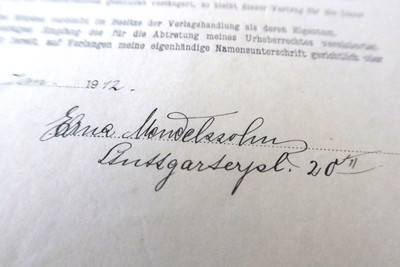 verlängert, so bleibt dieser Vertrag für die
im Besitze der Verlagshandlung als deren Eigentum.
Empfang des für die Abtretung meines Urheberrechtes vereinbarten
bereit auf Verlangen meine eigenhändige Namensunterschrift gerichtlich oder
1912.
Erna Mendelssohn
Stuttgarterpl. 20 III